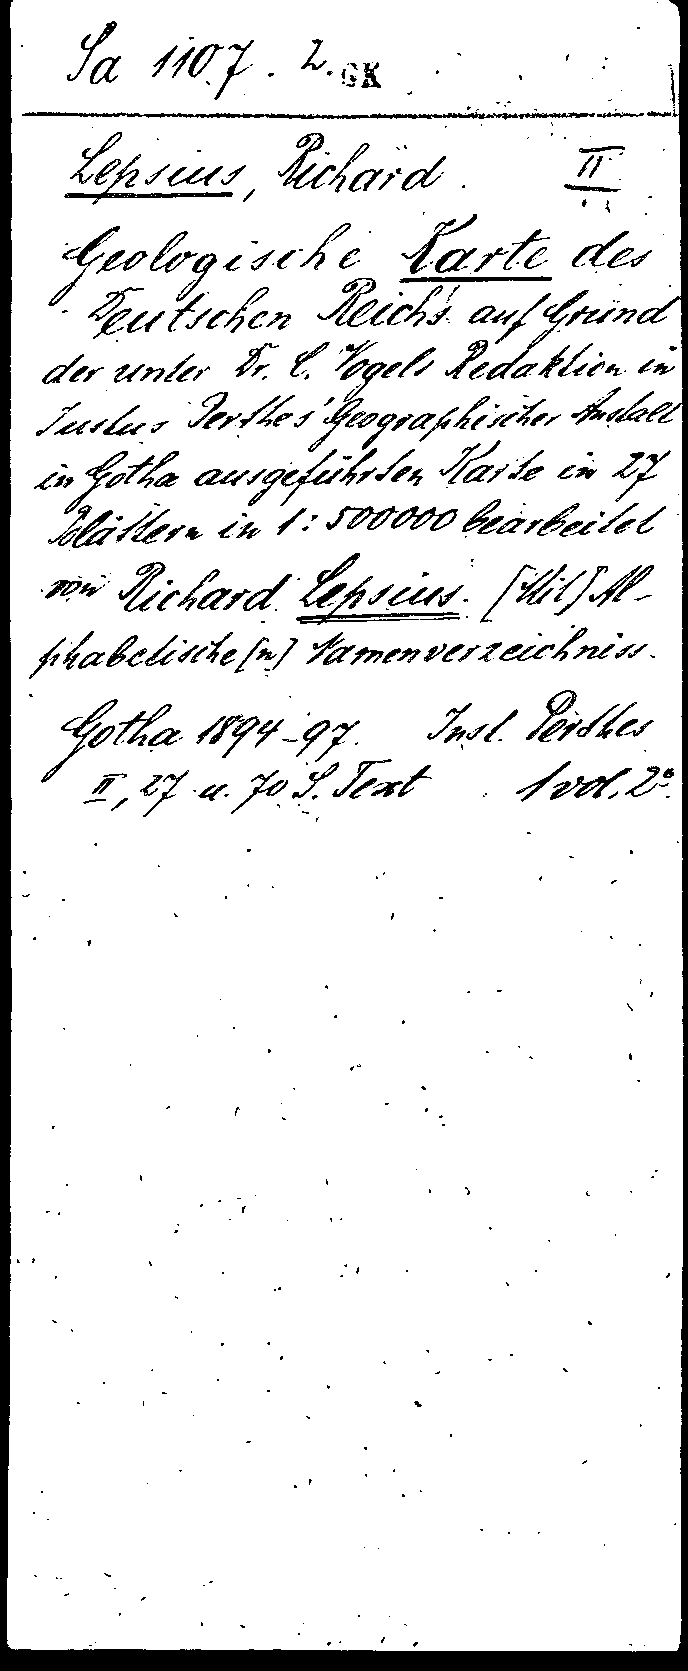 Sa 1107. 2. GK
Lepsius, Richard. II
Geologische Karte des
Deutschen Reichs auf Grund
der unter Dr. C. Vogels Redaktion in
Justus Perthes' Geographischer Anstalt
in Gotha ausgeführten Karte in 27
Blättern in 1:500000 bearbeitet
von Richard Lepsius. [Mit] Al-
phabetische[n] Namenverzeichniss.
Gotha 1894-97. Just. Perthes
II, 27 u. 70 S. Text 1 vol. 2°.